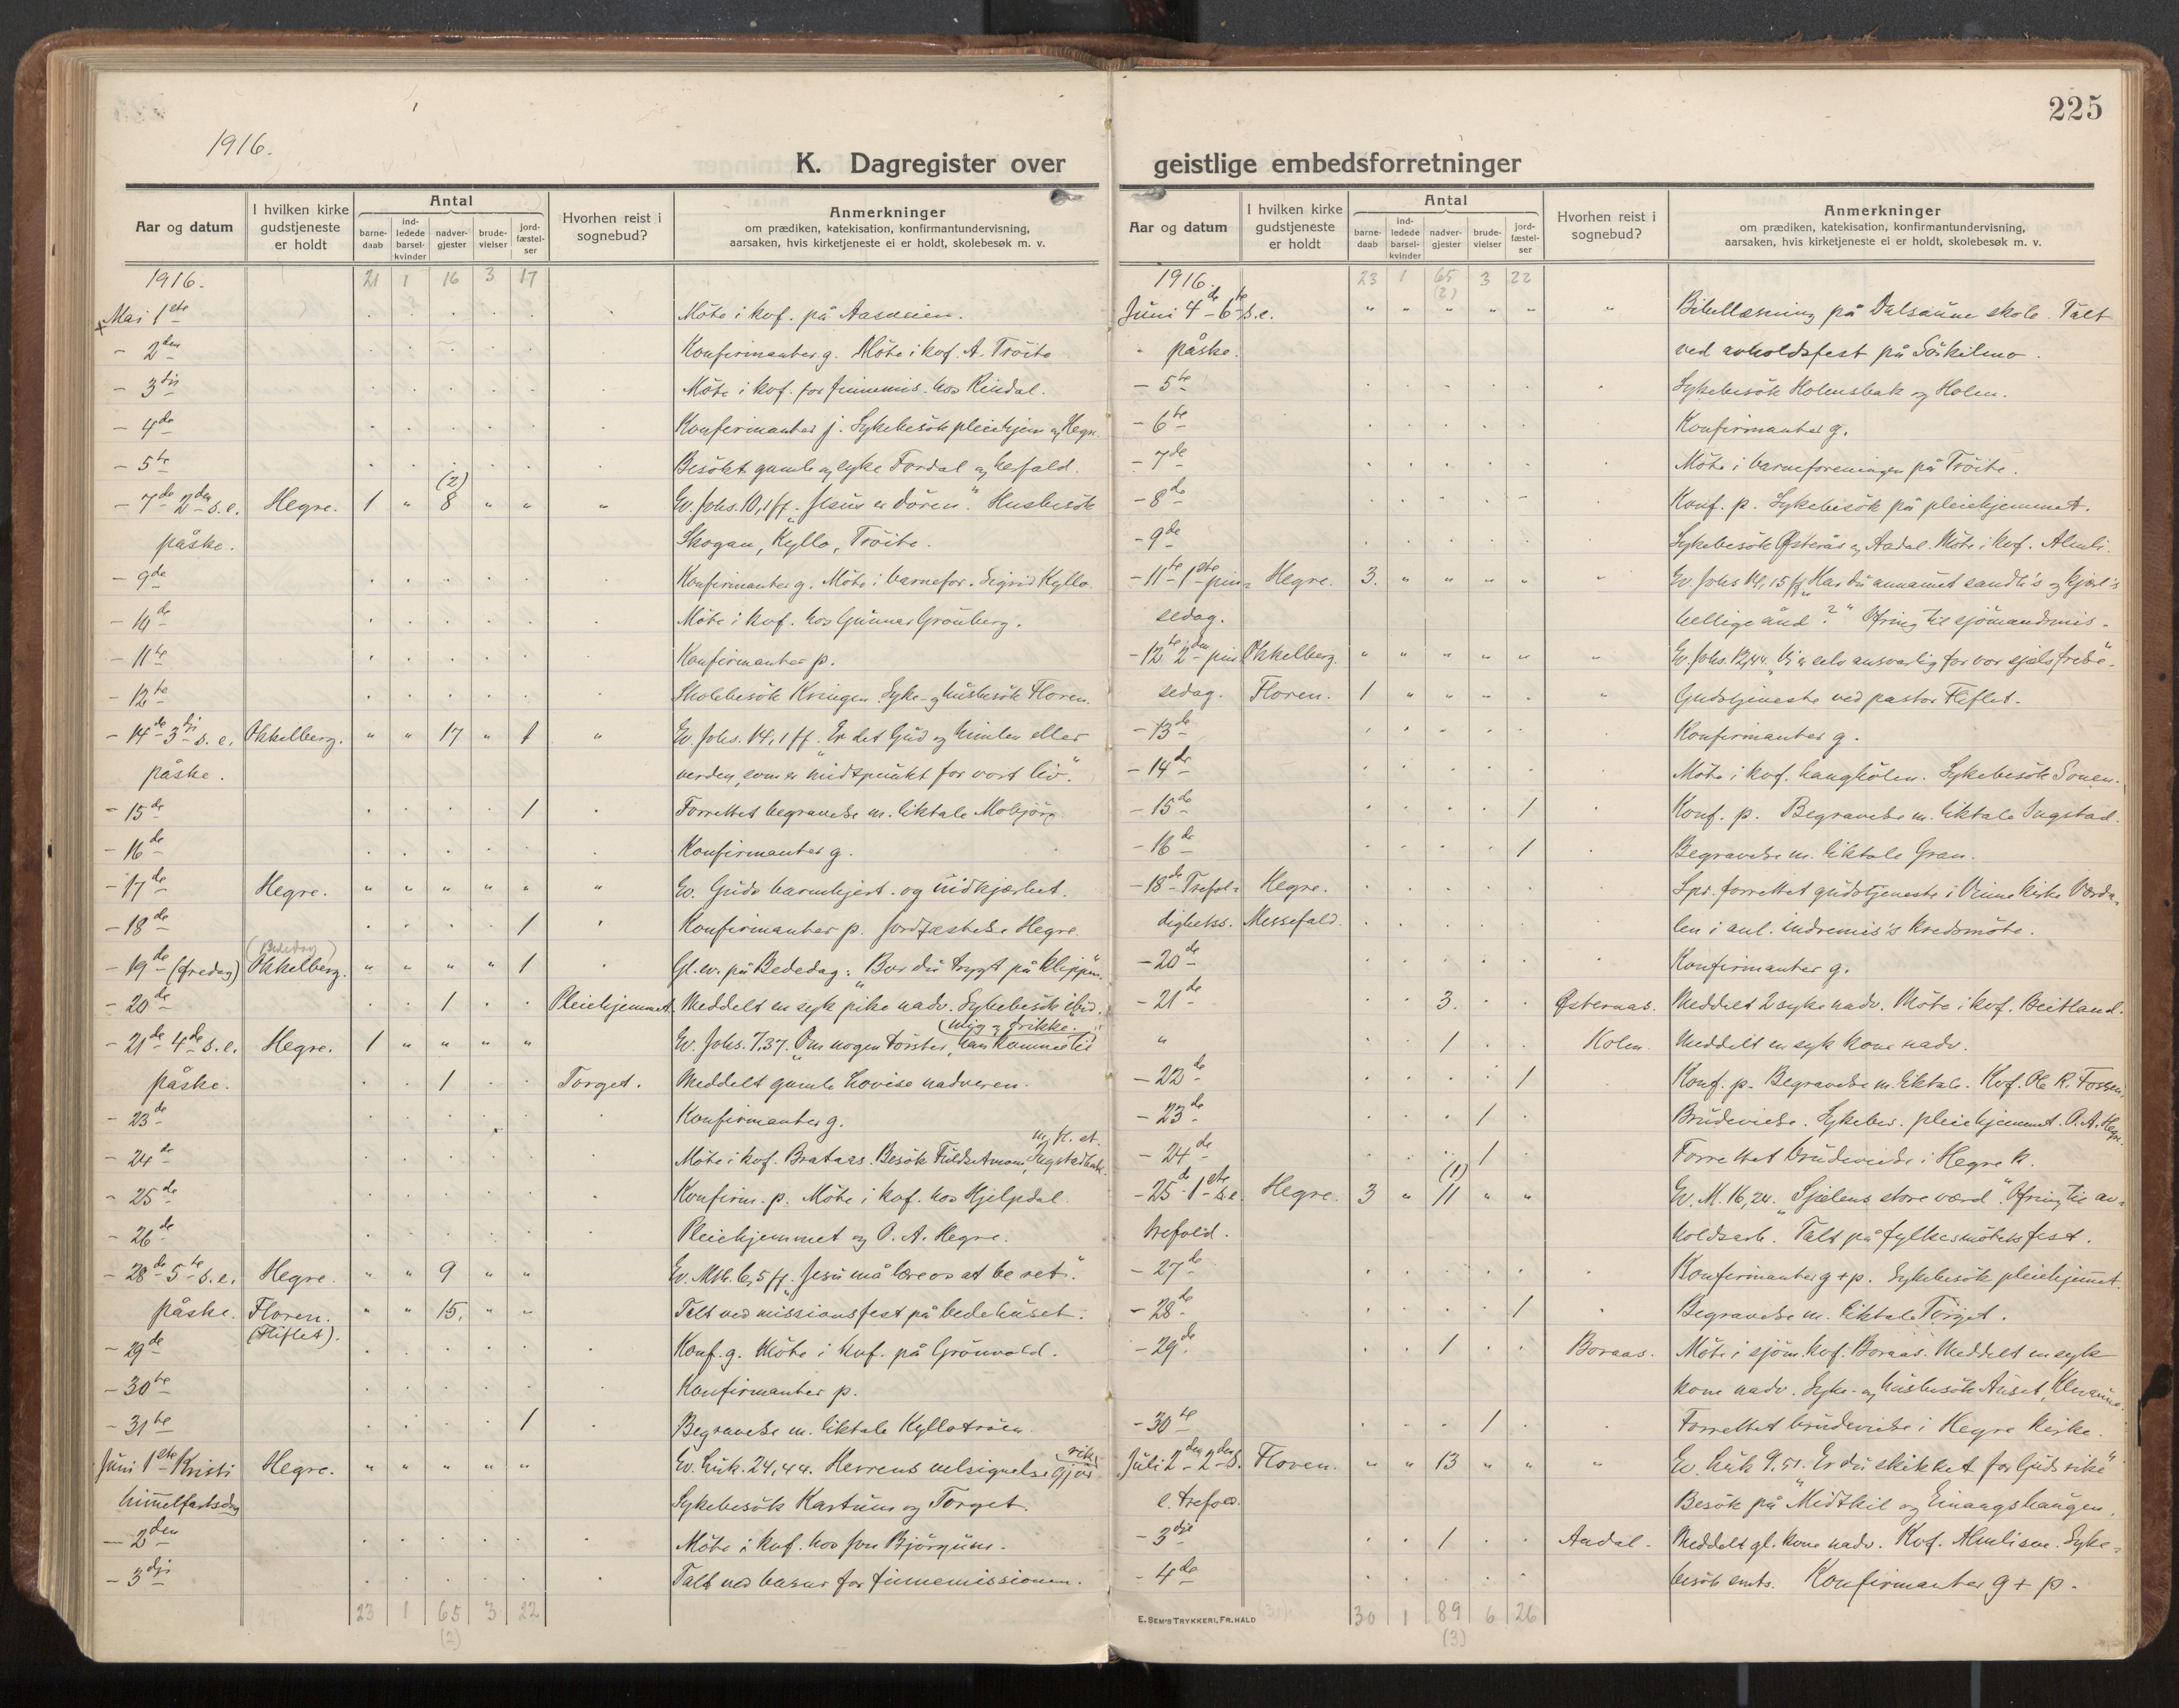 225
1916.
K. Dagregister over geistlige embedsforretninger
Aar og datum
I hvilken kirke gudstjeneste er holdt
Antal
barne-daab
ind-ledede barsel-kvinder
nadver-gjester
brude-vielser
jord-fæstel-ser
Hvorhen reist i sognebud?
Anmerkninger
om prædiken, katekisation, konfirmantundervisning,
aarsaken, hvis kirketjeneste ei er holdt, skolebesøk m. v.
1916. 21 1 16 3 17
Mai 1ste Möte i kvf. på Aasmien.
- 2den Konfirmanter g. Möte i kvf. A. Tröite
- 3dje Möte i kvf. for finnemis. hos Rindal.
- 4de Konfirmanter j. Sykebesök pleiehjem og Hegre.
- 5te Besökt gamle og syke Fordal og
- 7de 2den s.e. Hegre. 1 " (2) 8 " " " Ev. Johs. 10,1 ff. "Jesus er dören." Husbesök
påske. Skogan, Kyllo, Tröite.
- 9de Konfirmanter g. Möte i barnefor. Sigrid Kyllo
- 10de Möte i kvf. hos Gunnar Grönberg.
- 11te Konfirmanter p.
- 12te Skolebesök Kringen. Syke- og husbesök Floren.
- 14de 3dje s.e. Okkelberg. " " 17 " 1 " Ev. Johs. 14,1 ff. "Er det Gud og himlen eller
påske. verden, som er midtpunkt for vort liv."
- 15de 1 Forrettet begravelse m. liktale Mobjörg.
- 16de Konfirmanter g.
- 17de Hegre. " " " " " " Ev. Guds barmhjert. og nidkjærhet.
- 18de 1 Konfirmanter p. Jordfæstelse Hegre.
- 19de (fredag) (Bededag) Okkelberg. " " " " 1 Gl. ev. på Bededag: "Bor du trygt på klippen."
- 20de 1 Pleiehjemmet. Meddelt en syk pike nadv. Sykebesök ibid.
- 21de 4de s.e. Hegre. 1 " " " " Ev. Johs. 7,37. "Om nogen törster, han komme til
(mig og drikke."
påske. 1 Torget. Meddelt gamle Lovise nadveren.
- 23de Konfirmanter g.
- 24de Möte i kvf. Brataas. Besök Fuldsetmoen, Ingstadbak. m. fl. st.
- 25de Konfirm. p. Möte i kvf. hos Hjelpdal.
- 26de Pleiehjemmet og O. A. Hegre.
- 28de 5te s.e. Hegre. " " 9 " " Ev. Mth. 6,5 ff. "Jesu må lære os at be ret."
påske. Floren. " " 15. " " Talt ved missionsfest på bedehuset.
(Fliflet).
- 29de Konf. g. Möte i kvf. på Grönvold.
- 30te Konfirmanter p.
- 31te 1 Begravelse m. liktale Kyllotröen.
Juni 1ste Kristi Hegre. " " " " " Ev. Luk. 24,44. Herrens velsignelse gjör rik.
himmelfartsdag Sykebesök Kartum og Torget.
- 2den Möte i kvf. hos Jon Björgum.
- 3dje Talt ved basar for finnemissionen.
23 1 65 3 22
(2)
Aar og datum
I hvilken kirke gudstjeneste er holdt
Antal
barne-daab
ind-ledede barsel-kvinder
nadver-gjester
brude-vielser
jord-fæstel-ser
Hvorhen reist i sognebud?
Anmerkninger
om prædiken, katekisation, konfirmantundervisning,
aarsaken, hvis kirketjeneste ei er holdt, skolebesøk m. v.
1916. 23 1 65 (2) 3 22
Juni 4de 6te s.e. " " " " " " Bibellæsning på Dalsaune skole. Talt
påske. ved avholdsfest på Söskilmo.
- 5te Sykebesök Holmsbak og Holen.
- 6te Konfirmanter g.
- 7de Möte i barneforeningen på Tröite.
- 8de Konf. p. Sykebesök på pleiehjemmet.
- 9de Sykebesök Österås og Aadal. Möte i kvf. Almli.
- 11te 1ste pin= Hegre. 3. " " " " " Ev. Johs 14,15 ff "Har du annammet sandh's og kjærl's
sedag. hellige ånd?" Ofring til sjömandsmis.
- 12te 2den pin Okkelberg. " " " " " " Ev. Johs. 12,44. "Vi er selv ansvarlig for vor sjæls frelse".
sedag. Floren. 1 " " " " " Gudstjeneste ved pastor Fliflet.
- 13de Konfirmanter g.
- 14de Möte i kvf. Langhölen. Sykebesök Sonen.
- 15de 1 Konf. p. Begravelse m. liktale Ingstad.
- 16de 1 Begravelse m. liktale Gran.
- 18de Trefol= Hegre. Spr. forrettet gudstjeneste i Vinne kirke Værda=
dighetss. Messefald. len i anl. indremis's kredsmöte.
- 20de Konfirmanter g.
- 21de 3. Østeraas. Meddelt 2 syke nadv. Möte i kvf. Beitland.
" 1 Holen. Meddelt en syk kone nadv.
- 22de 1 Konf. p. Begravelse m. liktale. Kvf. Ole K. Fossen.
- 23de 1 Brudevielse. Sykebes. pleiehjemmet. O. A. Hegre.
- 24de 1 Forrettet brudevielse i Hegre k.
- 25de 1ste s.e. Hegre. 3 " (1) 11 " " Ev. M. 16,24. "Sjælens store værd". Ofring til av=
trefold. holdsarb. Talt på fylkesmötets fest.
- 27de Konfirmanter g + p. Sykebesök pleiehjemmet.
- 28de 1 Begravelse m. liktale Torget.
- 29de 1 Boraas. Möte i sjöm. kvf. Boraas. Meddelt en syk
kone nadv. Syke- og husbesök Auset,
- 30te 1 Forrettet brudevielse i Hegre kirke.
Juli 2den 2den s. Floren. " " 13 " " " Ev. Luk 9,51. "Er du skikket for Guds rike"
e. trefold. Besök på Midtkil og Einangshaugen.
- 3dje 1 Aadal. Meddelt gl. kone nadv. Kvf. Almlisve. Syke=
- 4de besök smts. Konfirmanter g + p.
E. SEM'S TRYKKERI, FR.HALD
30 1 89 6 26
(3)